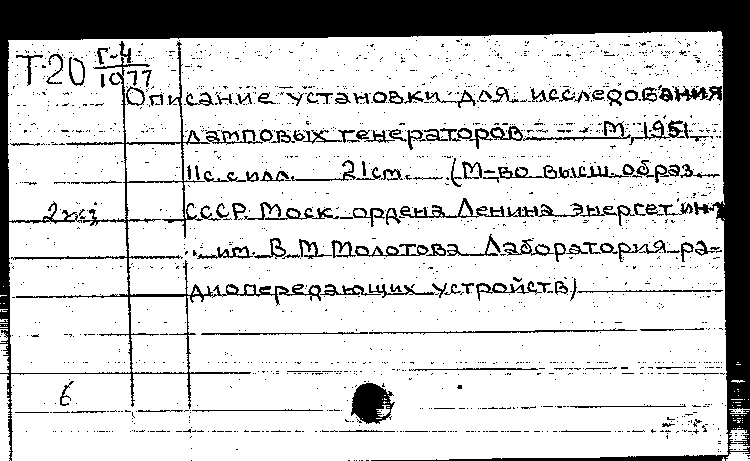 Т-20 Г-4
1077
Описание установки для исследования
ламповых генераторов — — М, 1951.
11с. с илл. 21 cm. (М-во высш. образ.
2экз СССР. Моск. ордена Ленина энергет ин-т
им. В М Молотова Лаборатория ра-
диопередающих устройств)
6